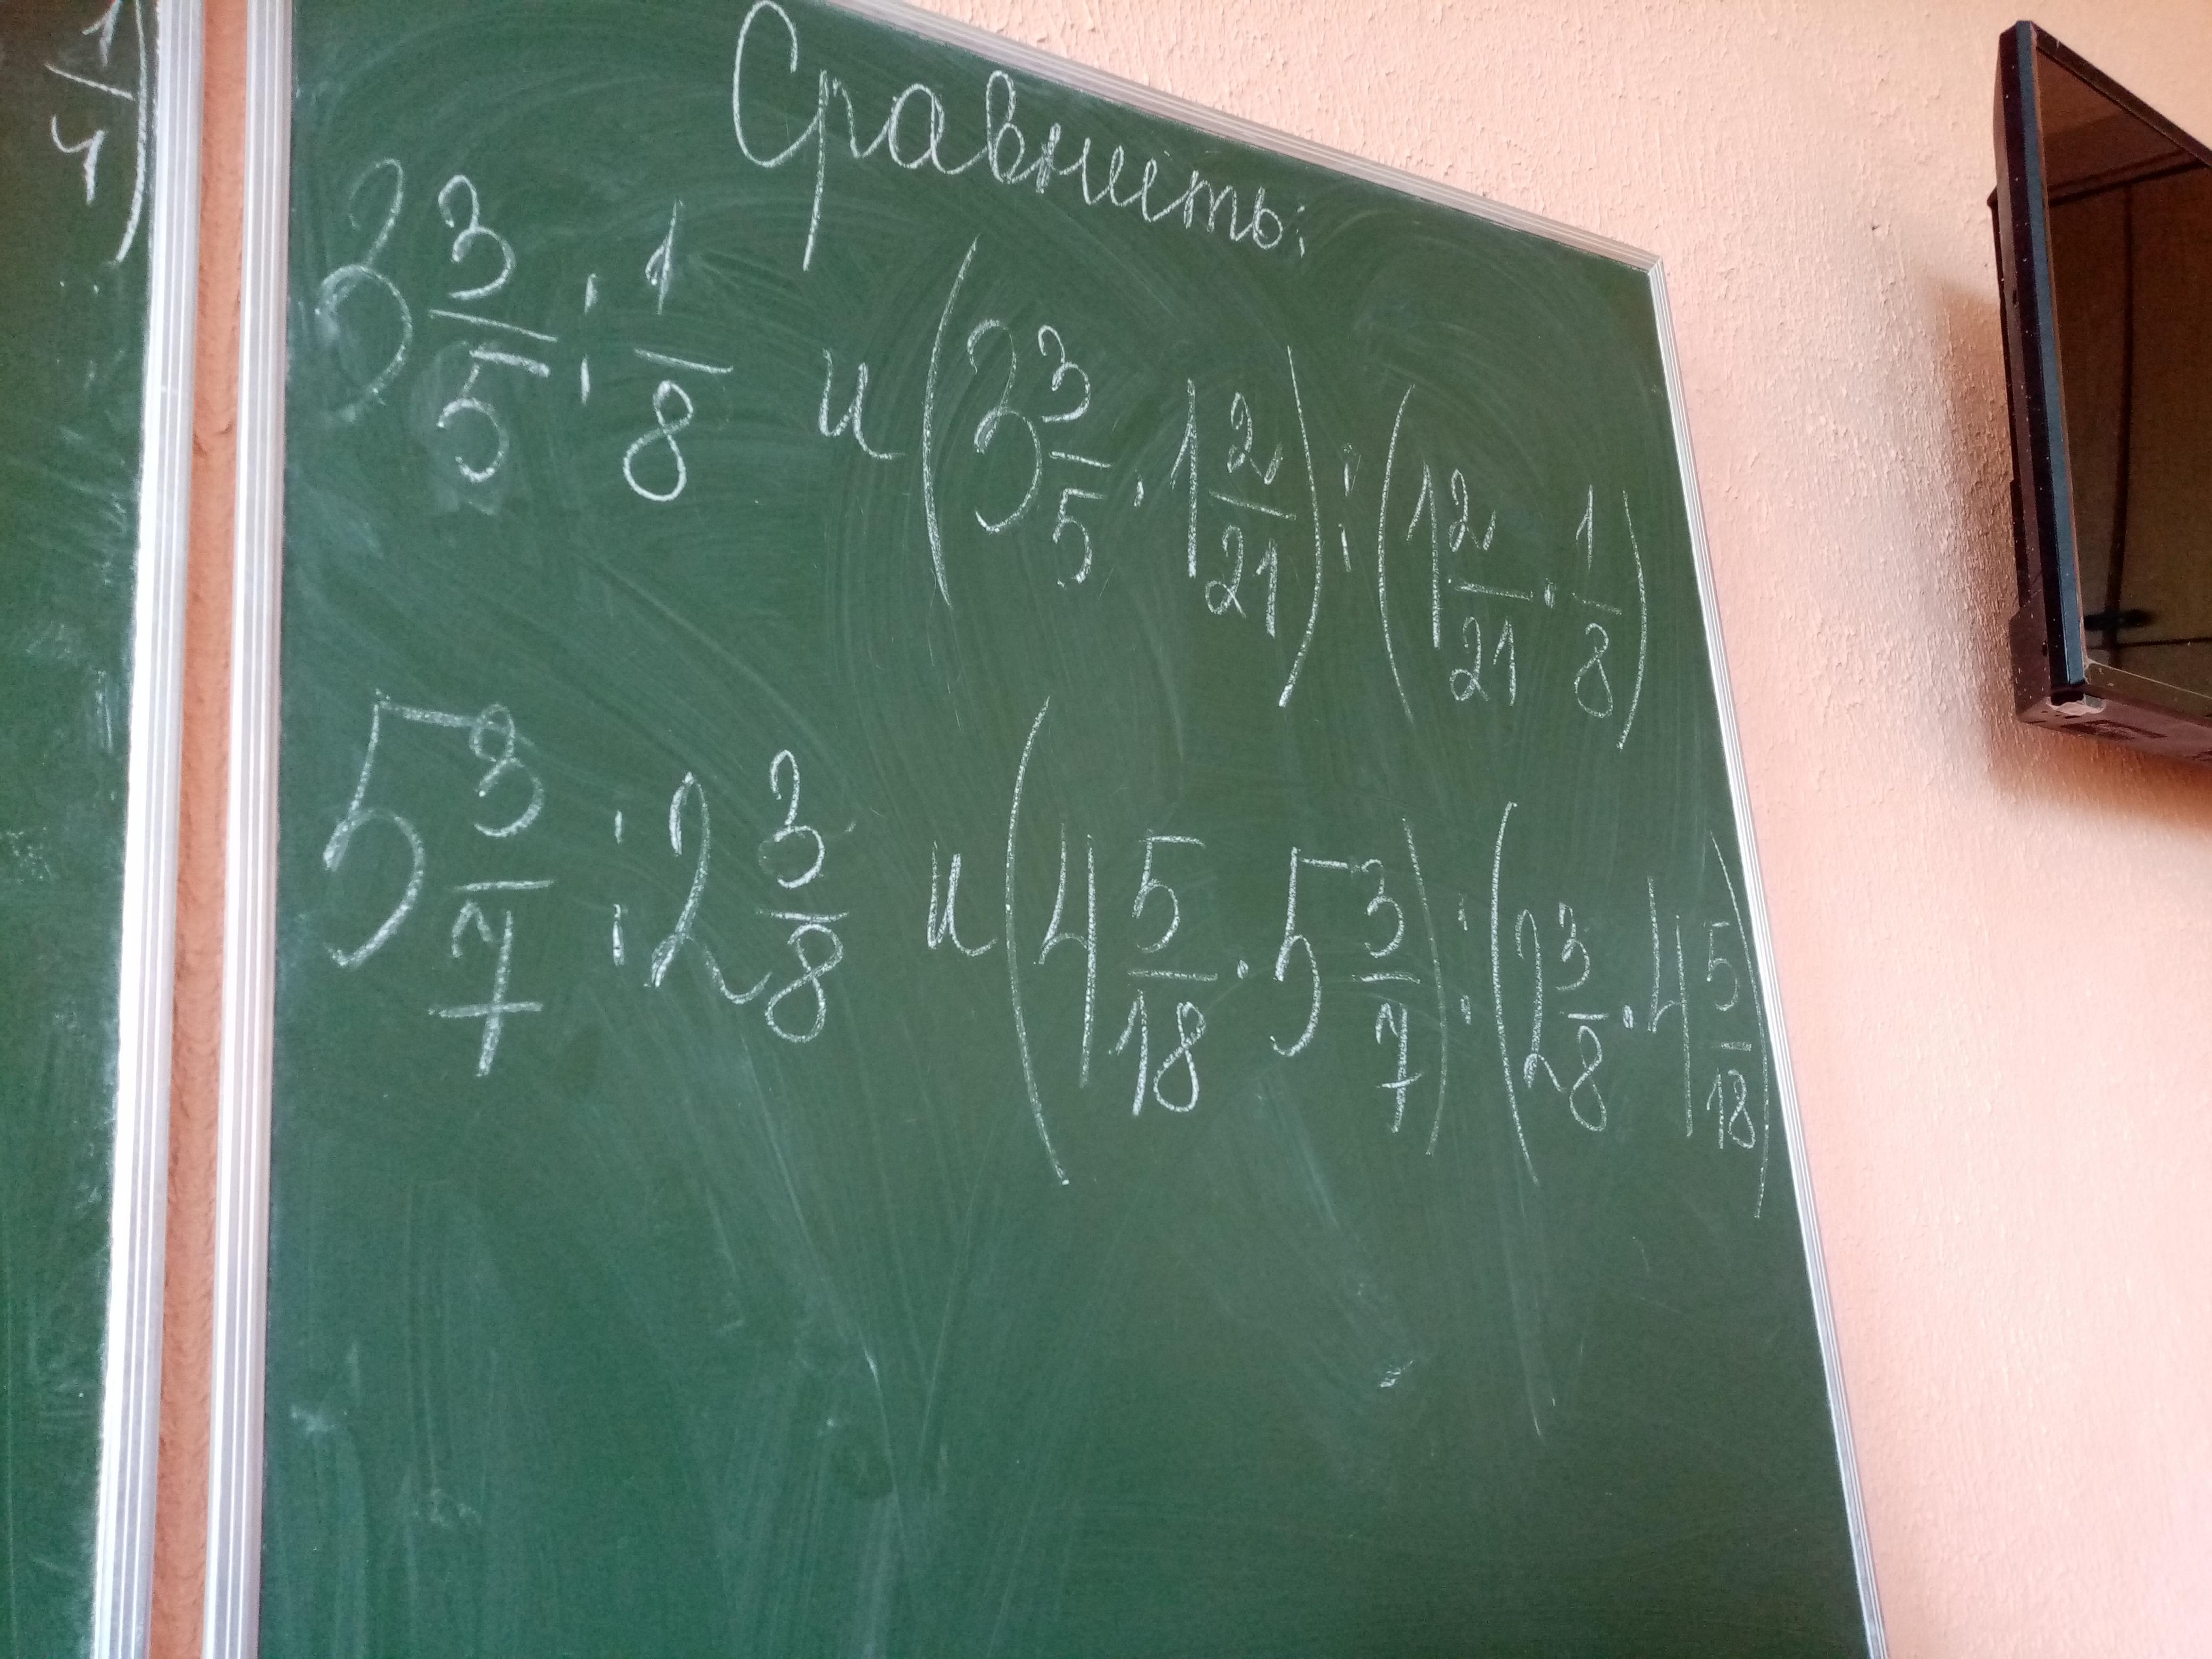 1/4)
Сравнить:
3 3/5 : 1/8 и (3 3/5 · 1 2/21) : (1 2/21 · 1/8)
5 3/7 : 2 3/8 и (4 5/18 · 5 3/7) : (2 3/8 · 4 5/18)